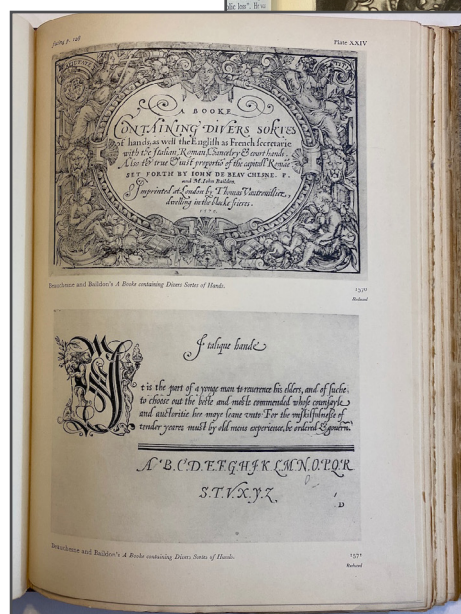 facing p. 148
Plate XXIV
A BOOKE
CONTAINING DIVERS SORTES
of hands, as well the English as French secretarie
with the Italian, Roman, Chancelry & court hands.
Also the true & iust proportiō of the capitall Romãe
SET FORTH BY IOHN DE BEAV CHESNE. P.
and M. Iohn Baildon.
Imprinted at London by Thomas Vautrouillier,
dwelling in the blacke frieres.
Beauchesne and Baildon's A Booke containing Divers Sortes of Hands.
1571
Reduced
Italique hande
It is the part of a yonge man to reuerence his elders, and of suche
to choose out the beste and moste commended whose counsayle
and auctoritie hee maye leane vnto: For the vnskilfulnesse of
tender yeares must by old mens experience, be ordered & gouern.
A B.C.D.E.F.G.H.I.K L.M.N.O.P.Q.R
S.T.V.X.Y.Z.
Beauchesne and Baildon's A Booke containing Divers Sortes of Hands.
1571
Reduced